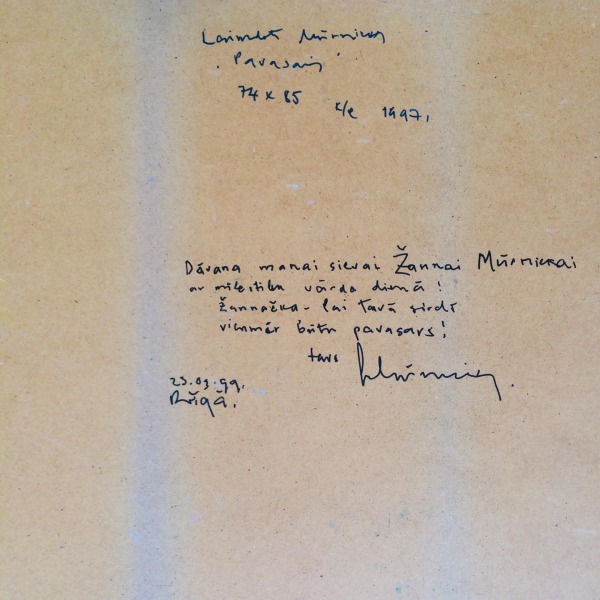 Laimdots Mūrnieks
"Pavasaris"
74 x 85 k/e 1997.
Dāvana manai sievai Žannai Mūrniekai
ar mīlestību vārda dienā!
Žannačka - lai tavā sirdī
vienmēr būtu pavasars!
tavs LMūrnieks
23.03.99.
Rīgā.